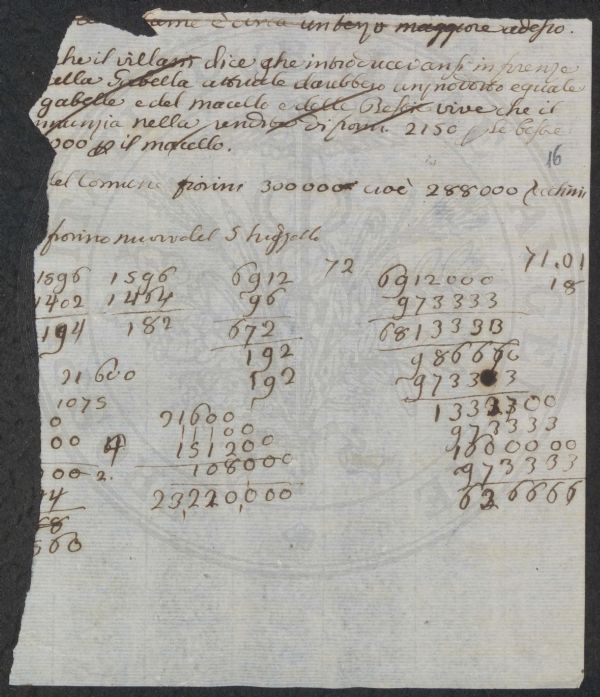 un terzo maggiore adesso.
che il villani dice che introducevansi in firenze
della Gabella attuale darebbero un prodotto eguale
gabelle e del macello e delle Bestie vive che il
nunzia nella rendita di fiorini 2150 le bestie
000 p il macello.
16
del Comune fiorini 300000 cioè 288000 Zecchini
fiorino nuovo del S
72
71.01
18
1596 1596 6912 6912000
1402 1464 96 973333
194 182 672 6813333
192 986660
21600 192 973333
1075 1333300
0 21600 973333
00 4 11100 1600000
151200 973333
00 2. 108000 626666
74 23220,000
68
560